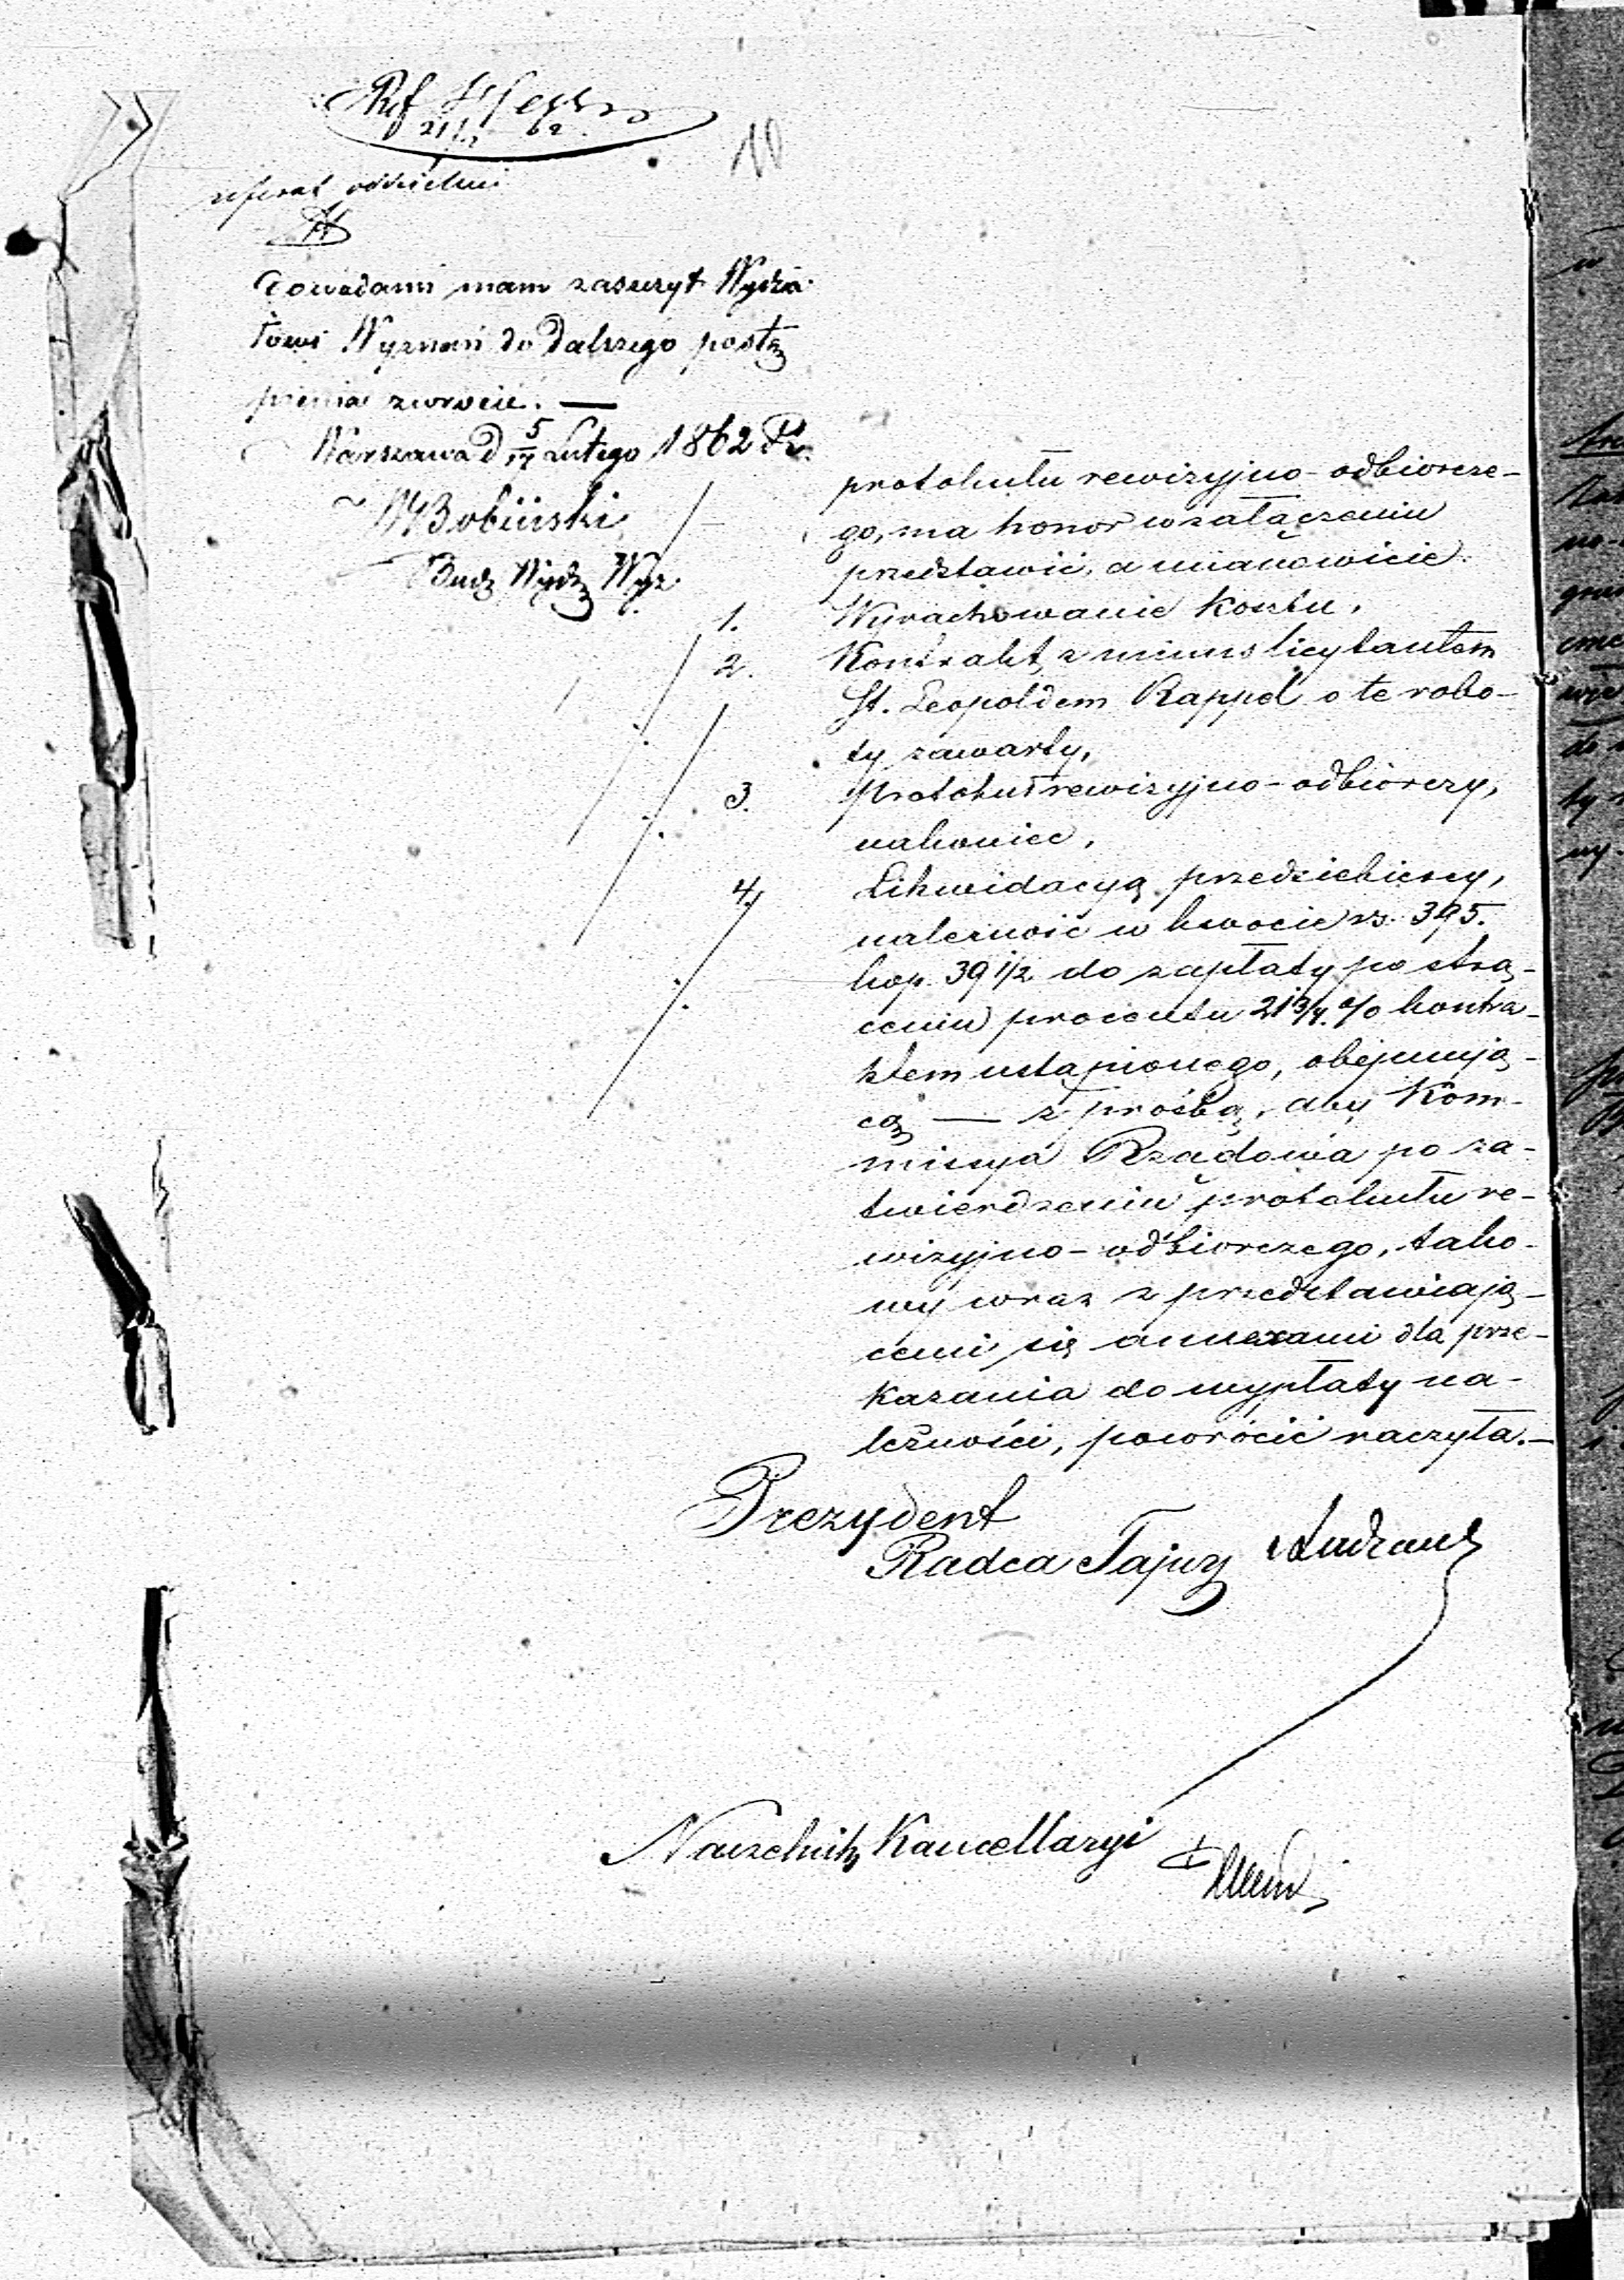 Ref
21/2 62.
10
referat oddzielni
Dowodami mam zaszczyt Wydzia-
łowi Wyznań do dalszego postę
pienia zwrócić. —
Warszawa d 5/17 Lutego 1862 R.
Bobiński
Bud: Wydz Wyz.
protokułu rewizyjno-odbiorcze-
go, ma honor w załączeniu
przedstawić, a mianowicie:
1. Wyrachowanie kosztu,
2. Kontrakt z minus licytantem
St. Leopoldem Rappel o te robo-
ty zawarty,
3. protokuł rewizyjno-odbiorczy,
nakoniec,
4. Likwidacyą przedsiebiercy,
należność w kwocie rs. 395.
kop. 39 1/2 do zapłaty po strą-
ceniu procentu 21 3/4 % kontra-
ktem ustąpionego, obejmują-
cą — z prośbą, aby Kom-
missya Rządowa po za-
twierdzeniu protokułu re-
wizyjno-odbiorczego, tako-
wy wraz z przedstawiają-
cemi się annexami dla prze-
kazania do wypłaty na-
leżności, powrócić raczyła.—
Prezydent
Radca Tajny
Naczelnik Kancellaryi